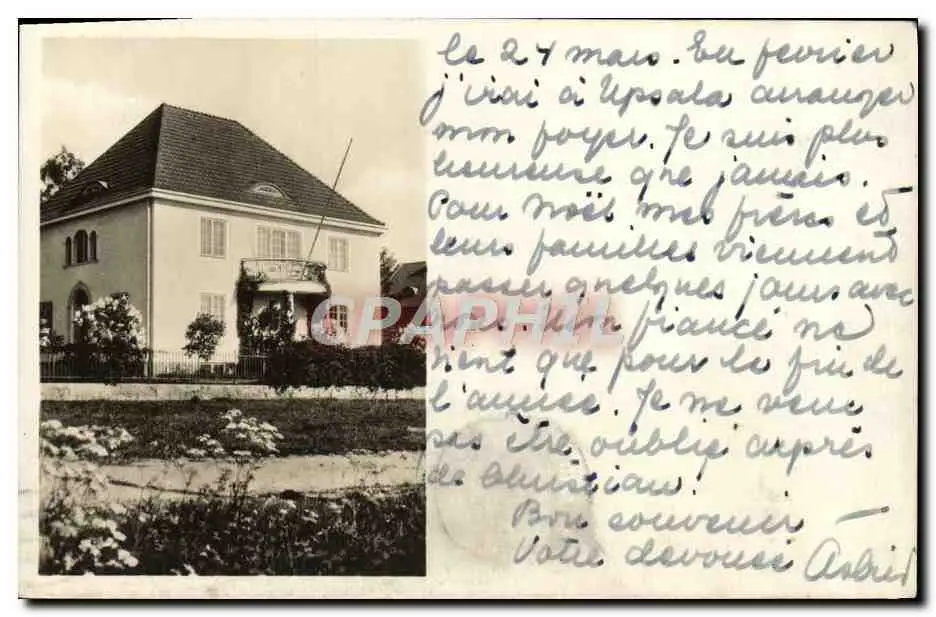 le 24 mars. En février
j'irai à Upsala arranger
mon foyer. Je suis plus
heureuse que jamais.
Pour Noël mes frères et
leurs familles viennent
passer quelques jours avec
nous. Mon fiancé ne
vient que pour la fin de
l'année. Je ne veux
pas être oublié auprès
de Christian.
Bon souvenir
Votre dévouée Astrid
CPAPHIL